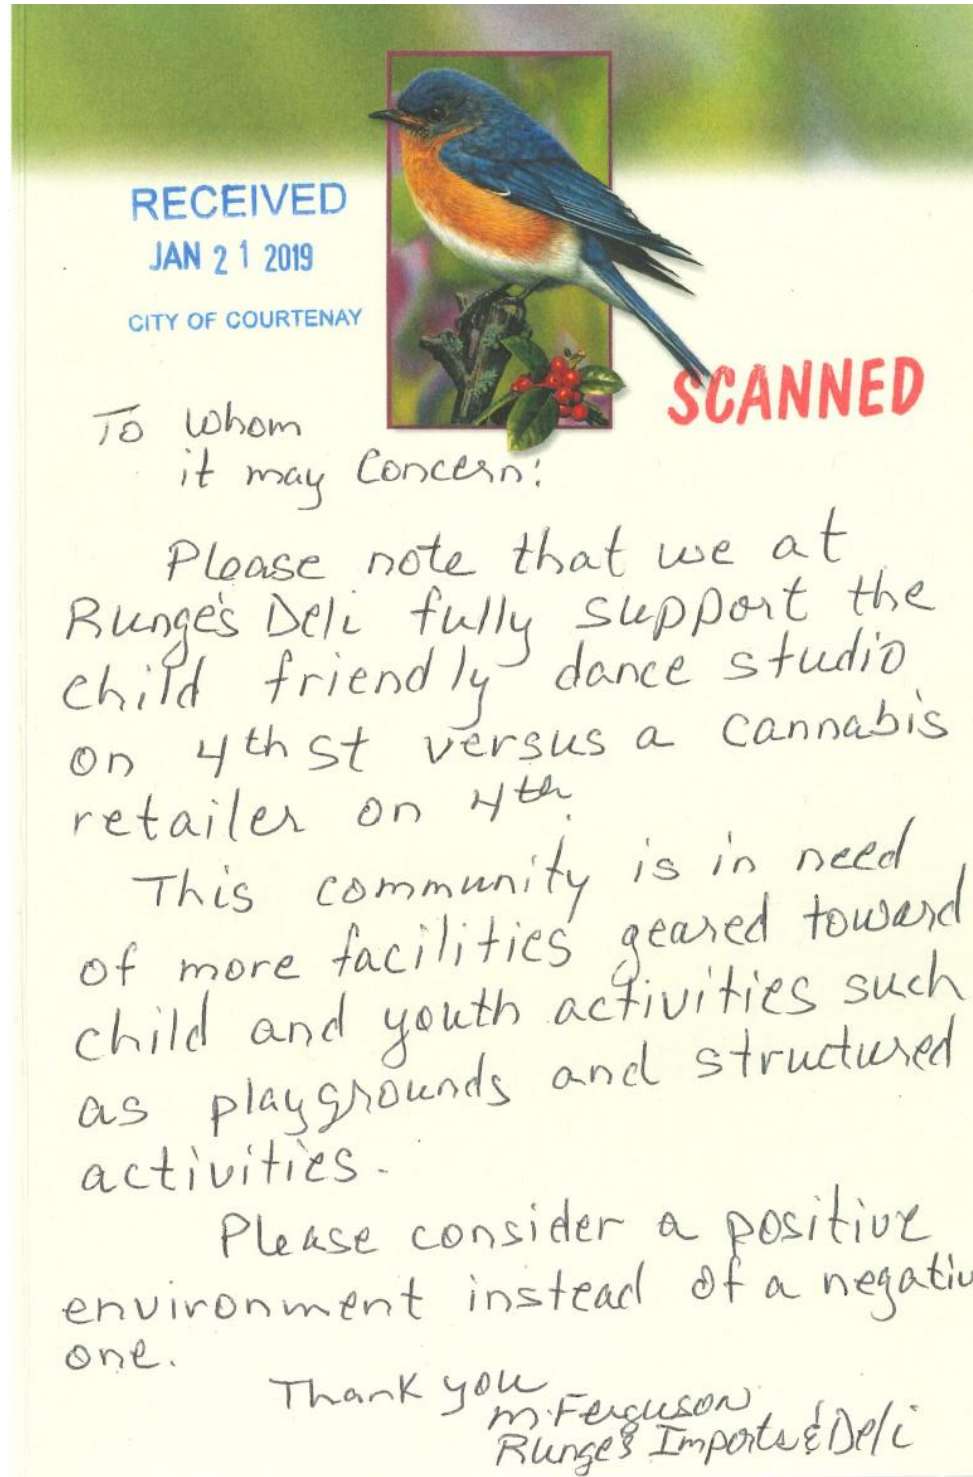 RECEIVED
JAN 21 2019
CITY OF COURTENAY
SCANNED
To Whom
it may Concern:
Please note that we at
Runge's Deli fully support the
child friendly dance studio
on 4th st versus a cannabis
retailer on 4th.
This community is in need
of more facilities geared toward
child and youth activities such
as playgrounds and structured
activities.
Please consider a positive
environment instead of a negativ
one.
Thank you
M. Ferguson
Runge's Imports & Deli